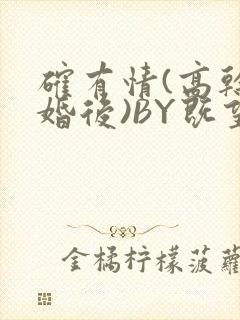 確有情(高幹
婚後)BY既望
金橘柠檬菠蘿